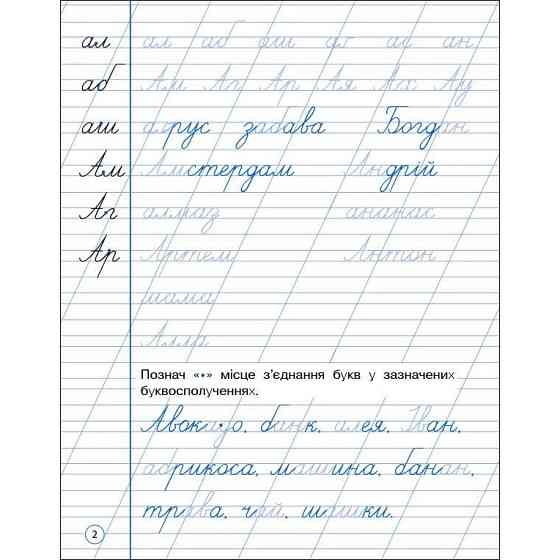 ал ал аб аш аг ас ан
аб Ам Аг Ар Ая Ах Ау
аш забава Богдан
Ам Амстердам Андрій
Аг алмаз ананас
Ар Артем Антон
мама
Алла
Познач «•» місце з’єднання букв у зазначених
буквосполученнях.
Авокадо, банк, алея, Іван,
абрикоса, машина, банан,
трава, чай, шашки.
2